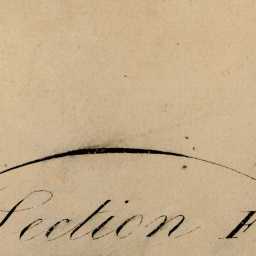 Section F